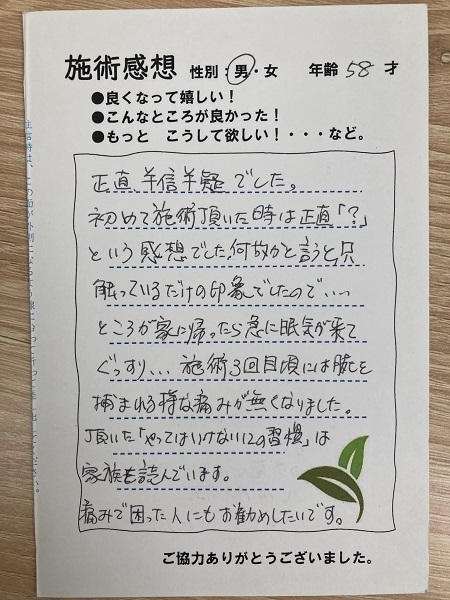 施術感想 性別・男・女 年齢 58 才
●良くなって嬉しい！
●こんなところが良かった！
●もっと こうして欲しい！・・・など。
正直、半信半疑でした。
初めて施術頂いた時は正直「?」
という感想でした。何故かと言うと、只
触っているだけの印象でしたので…
ところが家に帰ったら急に眠気が来て
ぐっすり… 施術3回目頃には腕を
捕まれる様な痛みが無くなりました。
頂いた「やってはいけない12の習慣」は
家族も読んでいます。
痛みで困った人にもお勧めしたいです。
ご協力ありがとうございました。